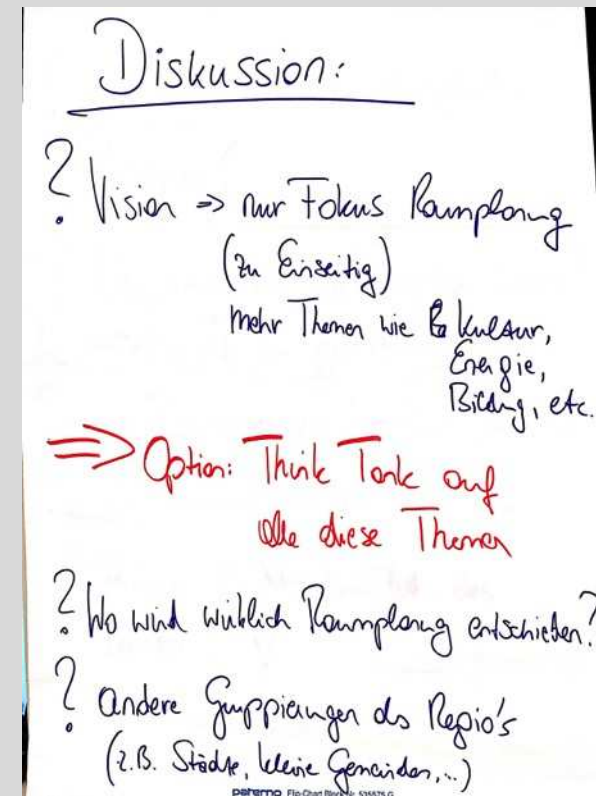 Diskussion:
? Vision => nur Fokus Raumplanung
(zu Einseitig)
mehr Themen wie Kultur,
Energie,
Bildung, etc.
=> Option: Think Tank auf
alle diese Themen
? Wo wird wirklich Raumplanung entschieden?
? andere Gruppierungen als Regio's
(z.B. Städte, kleine Gemeinden,..)
paterno Flip-Chart Block Nr. 535575 G